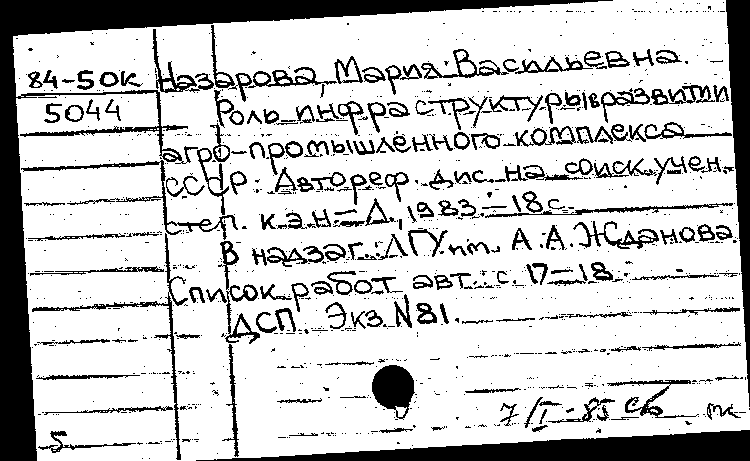 84-50к Назарова, Мария Васильевна.
5044 Роль инфраструктуры в развитии
агро-промышленного комплекса
СССР: Автореф. дис. на соиск. учен.
степ. к.э.н. – Л., 1983. – 18 с.
В надзаг.: ЛГУ им. А.А. Жданова
Список работ авт.: с. 17–18.
ДСП. Экз. N 81.
7/I-85 Сб мк
5